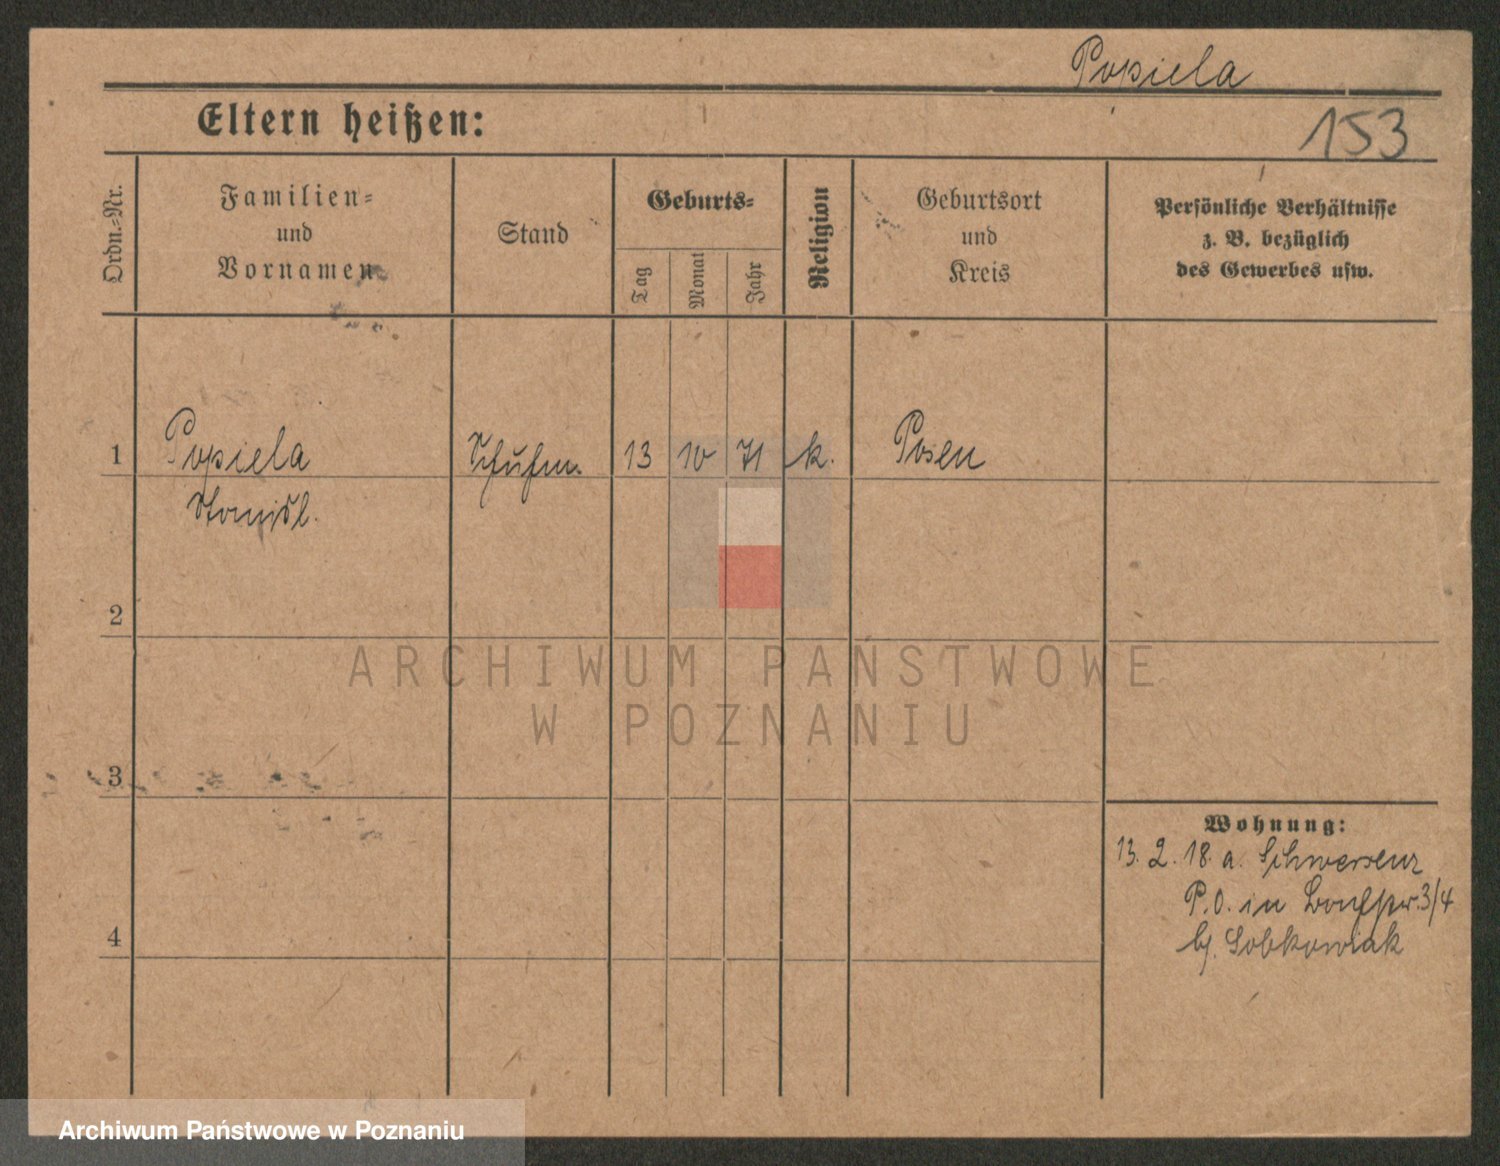 Popiela
Eltern heißen:
153
Ordn.-Nr.
Familien-
und
Vornamen
Stand
Geburts-
Tag
Monat
Jahr
Religion
Geburtsort
und
Kreis
Persönliche Verhältnisse
z. B. bezüglich
des Gewerbes usw.
1 Popiela Schuhm. 13 10 71 k. Posen
Stanisl.
2
ARCHIWUM PAŃSTWOWE
W POZNANIU
3
Wohnung:
13. 2. 18. a. Schwersenz
P.O. in 3/4
4
b/. Sobkowiak
Archiwum Państwowe w Poznaniu